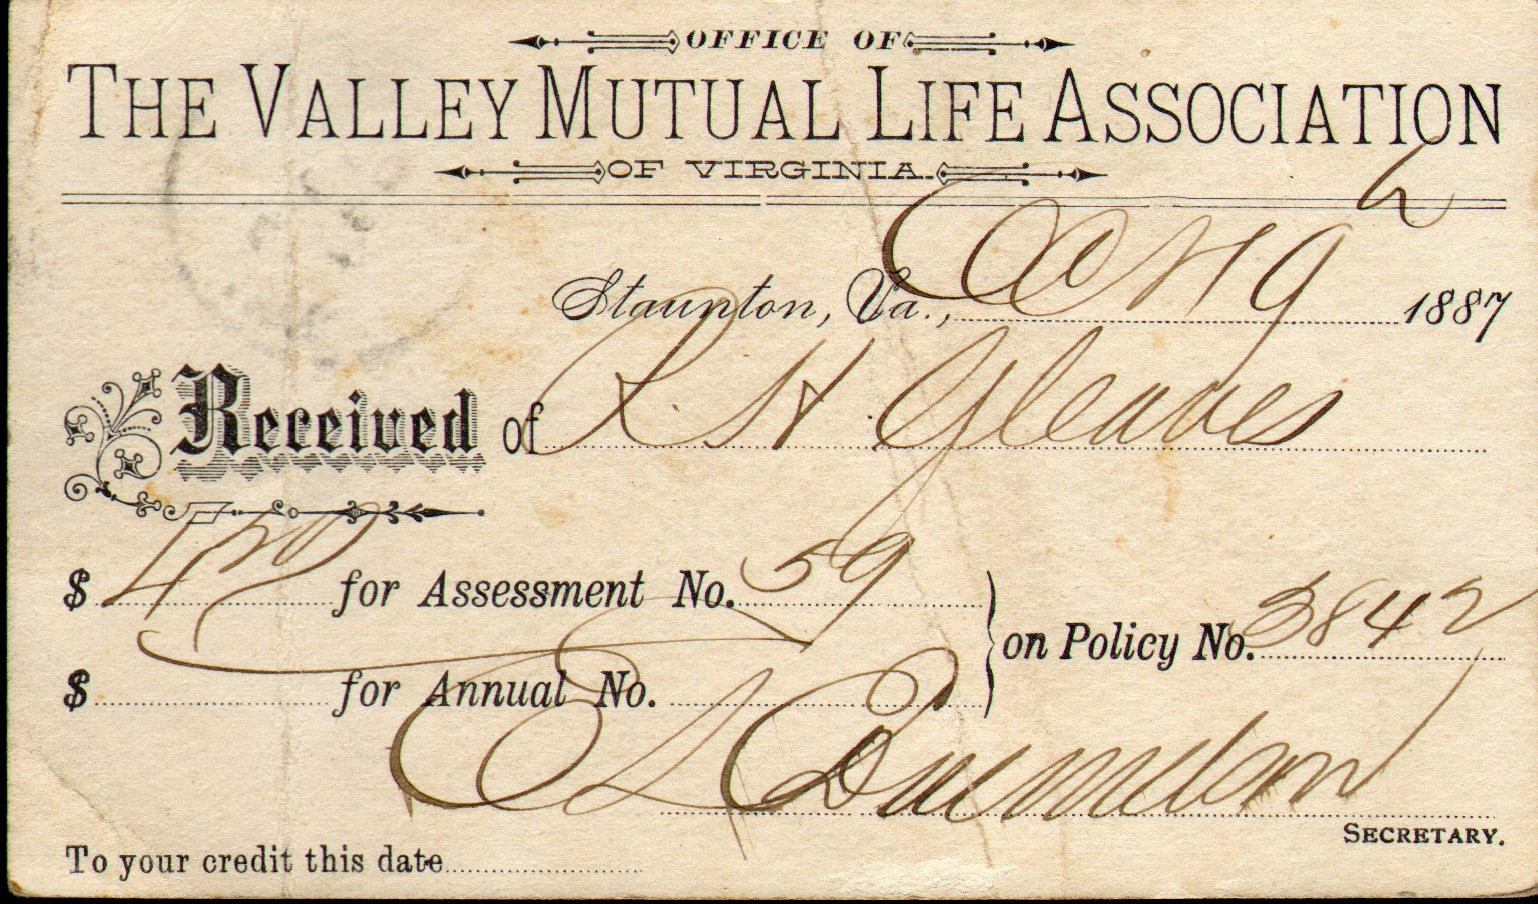 OFFICE OF
THE VALLEY MUTUAL LIFE ASSOCIATION
OF VIRGINIA.
Staunton, Va., 1887
Received of Gleaves
$ for Assessment No. 59
on Policy No. 3842
$ for Annual No.
SECRETARY.
To your credit this date